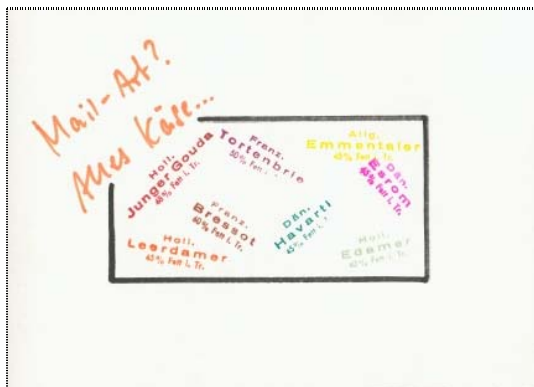 Mail-Art?
Alles Käse...
Holl.
Junger Gouda
48% Fett i. Tr.
Franz.
Tortenbrie
50% Fett i.
Allg.
Emmentaler
45% Fett i. Tr.
Dän.
Esrom
45% Fett i. Tr.
Franz.
Bressot
60% Fett i. Tr.
Dän.
Havarti
45% Fett i.
Holl.
Leerdamer
45% Fett i. Tr.
Holl.
Edamer
45% Fett i. Tr.